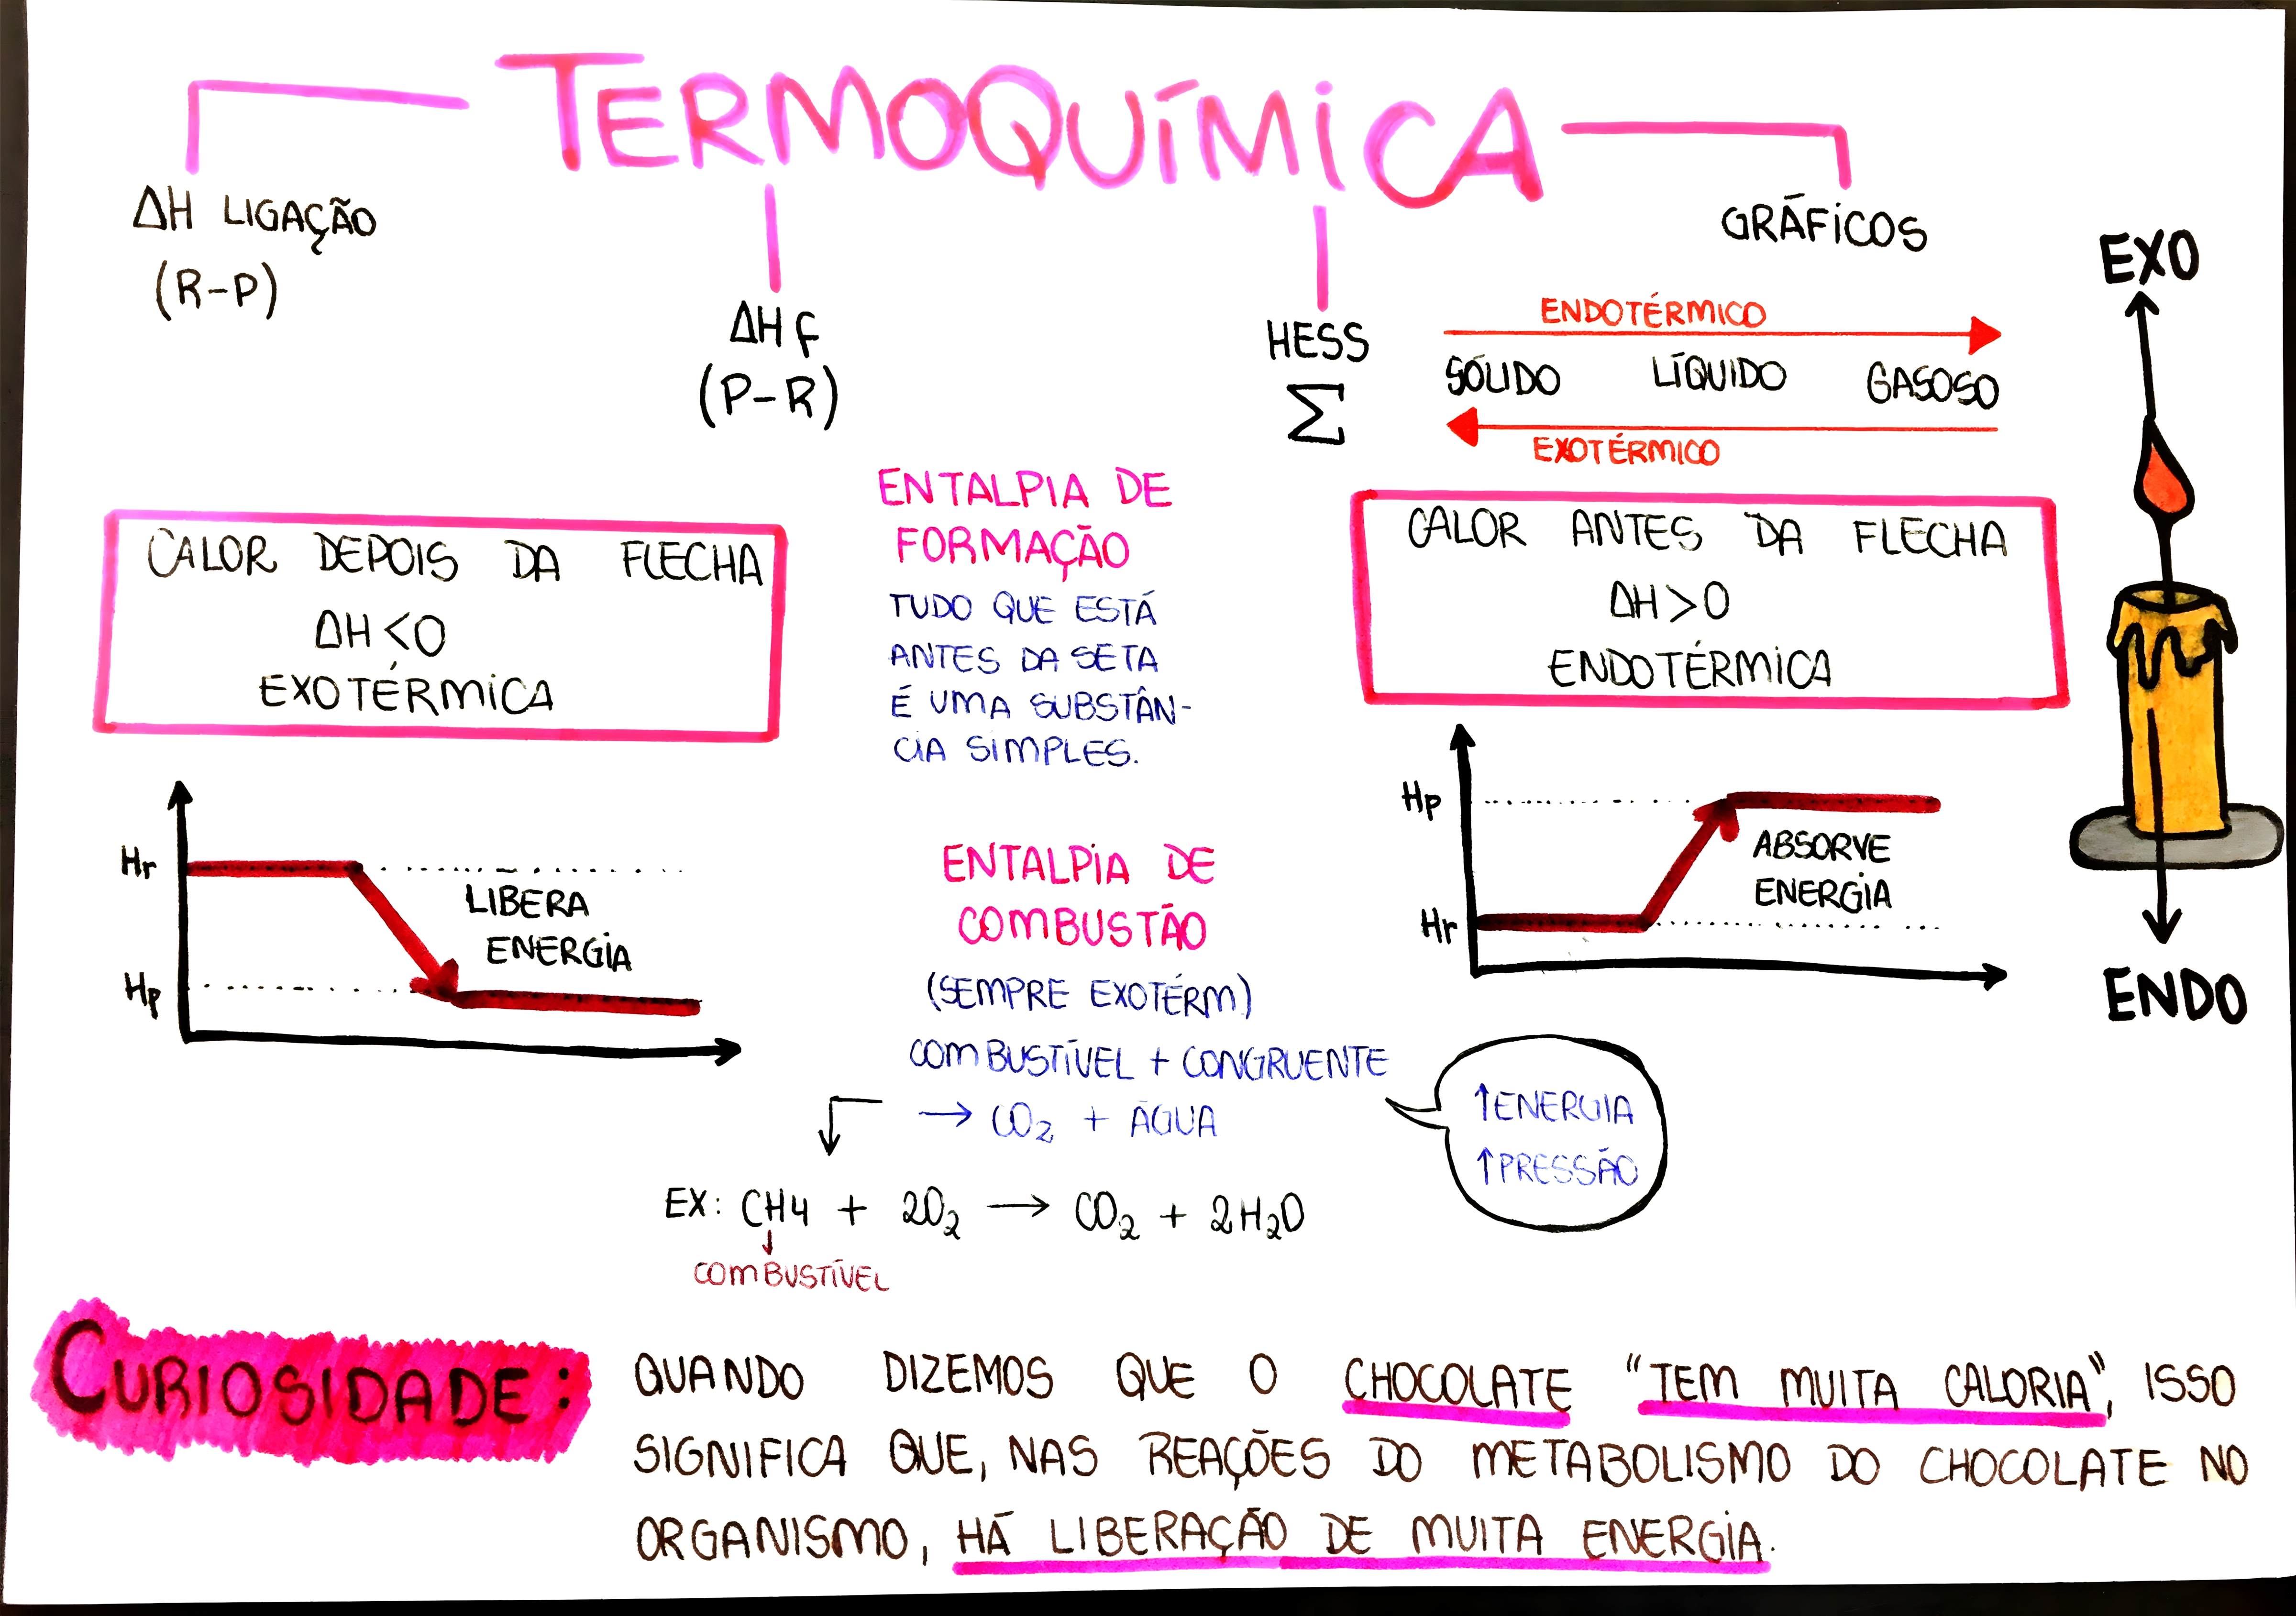 TERMOQUÍMICA
ΔH LIGAÇÃO
(R-P)
ΔHf
(P-R)
HESS
Σ
GRÁFICOS
ENDOTÉRMICO
SÓLIDO LÍQUIDO GASOSO
EXOTÉRMICO
EXO
ENDO
CALOR DEPOIS DA FLECHA
ΔH<0
EXOTÉRMICA
Hr
LIBERA
ENERGIA
Hp
ENTALPIA DE
FORMAÇÃO
TUDO QUE ESTÁ
ANTES DA SETA
É UMA SUBSTÂN-
CIA SIMPLES.
CALOR ANTES DA FLECHA
ΔH>0
ENDOTÉRMICA
Hp
ABSORVE
ENERGIA
Hr
ENTALPIA DE
COMBUSTÃO
(SEMPRE EXOTÉRM)
COMBUSTÍVEL + CONGRUENTE
→ CO₂ + ÁGUA
↑ENERGIA
↑PRESSÃO
EX: CH4 + 2O₂ → CO₂ + 2H₂O
↓
COMBUSTÍVEL
CURIOSIDADE:
QUANDO DIZEMOS QUE O CHOCOLATE "TEM MUITA CALORIA", ISSO
SIGNIFICA QUE, NAS REAÇÕES DO METABOLISMO DO CHOCOLATE NO
ORGANISMO, HÁ LIBERAÇÃO DE MUITA ENERGIA.